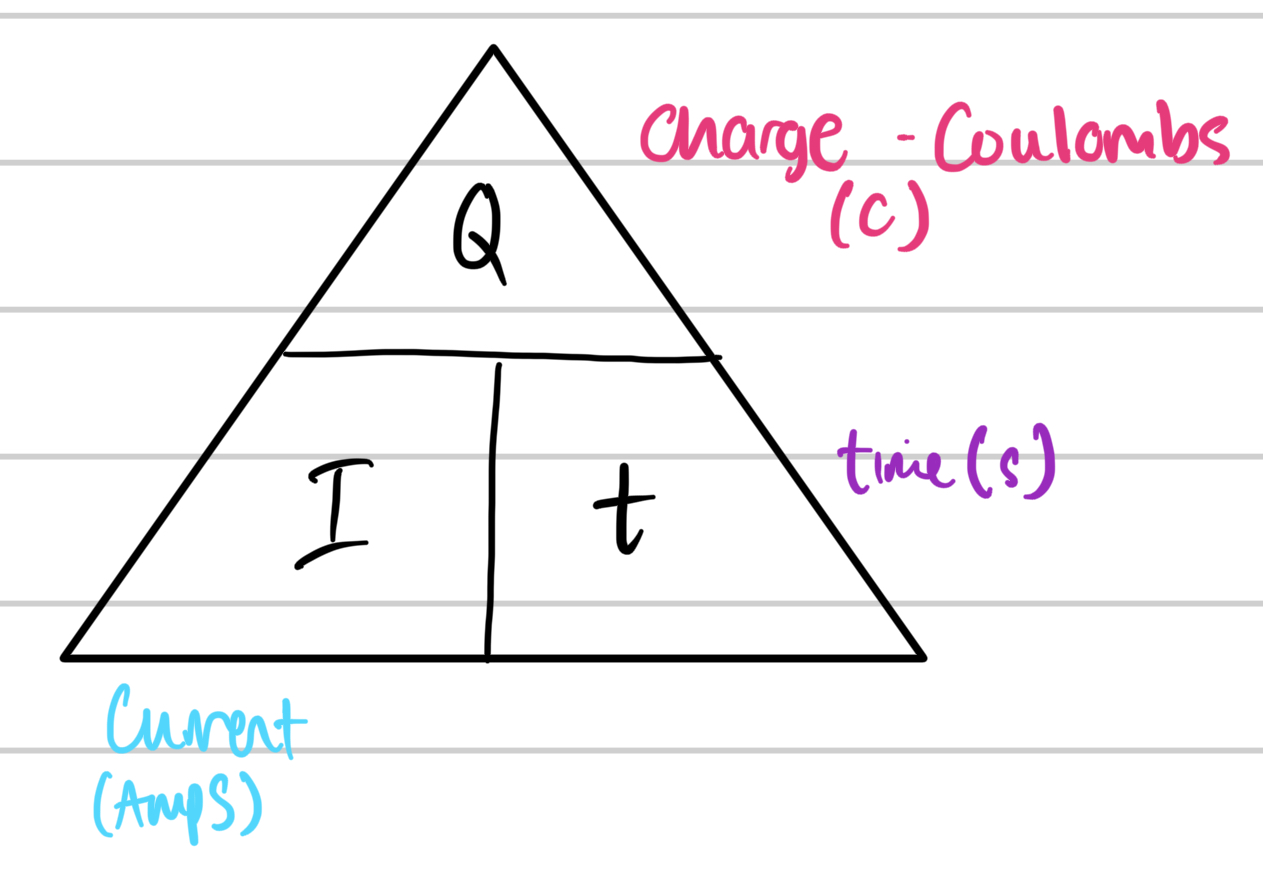 Charge - Coulombs
(C)
Q
time (s)
I t
Current
(Amps)